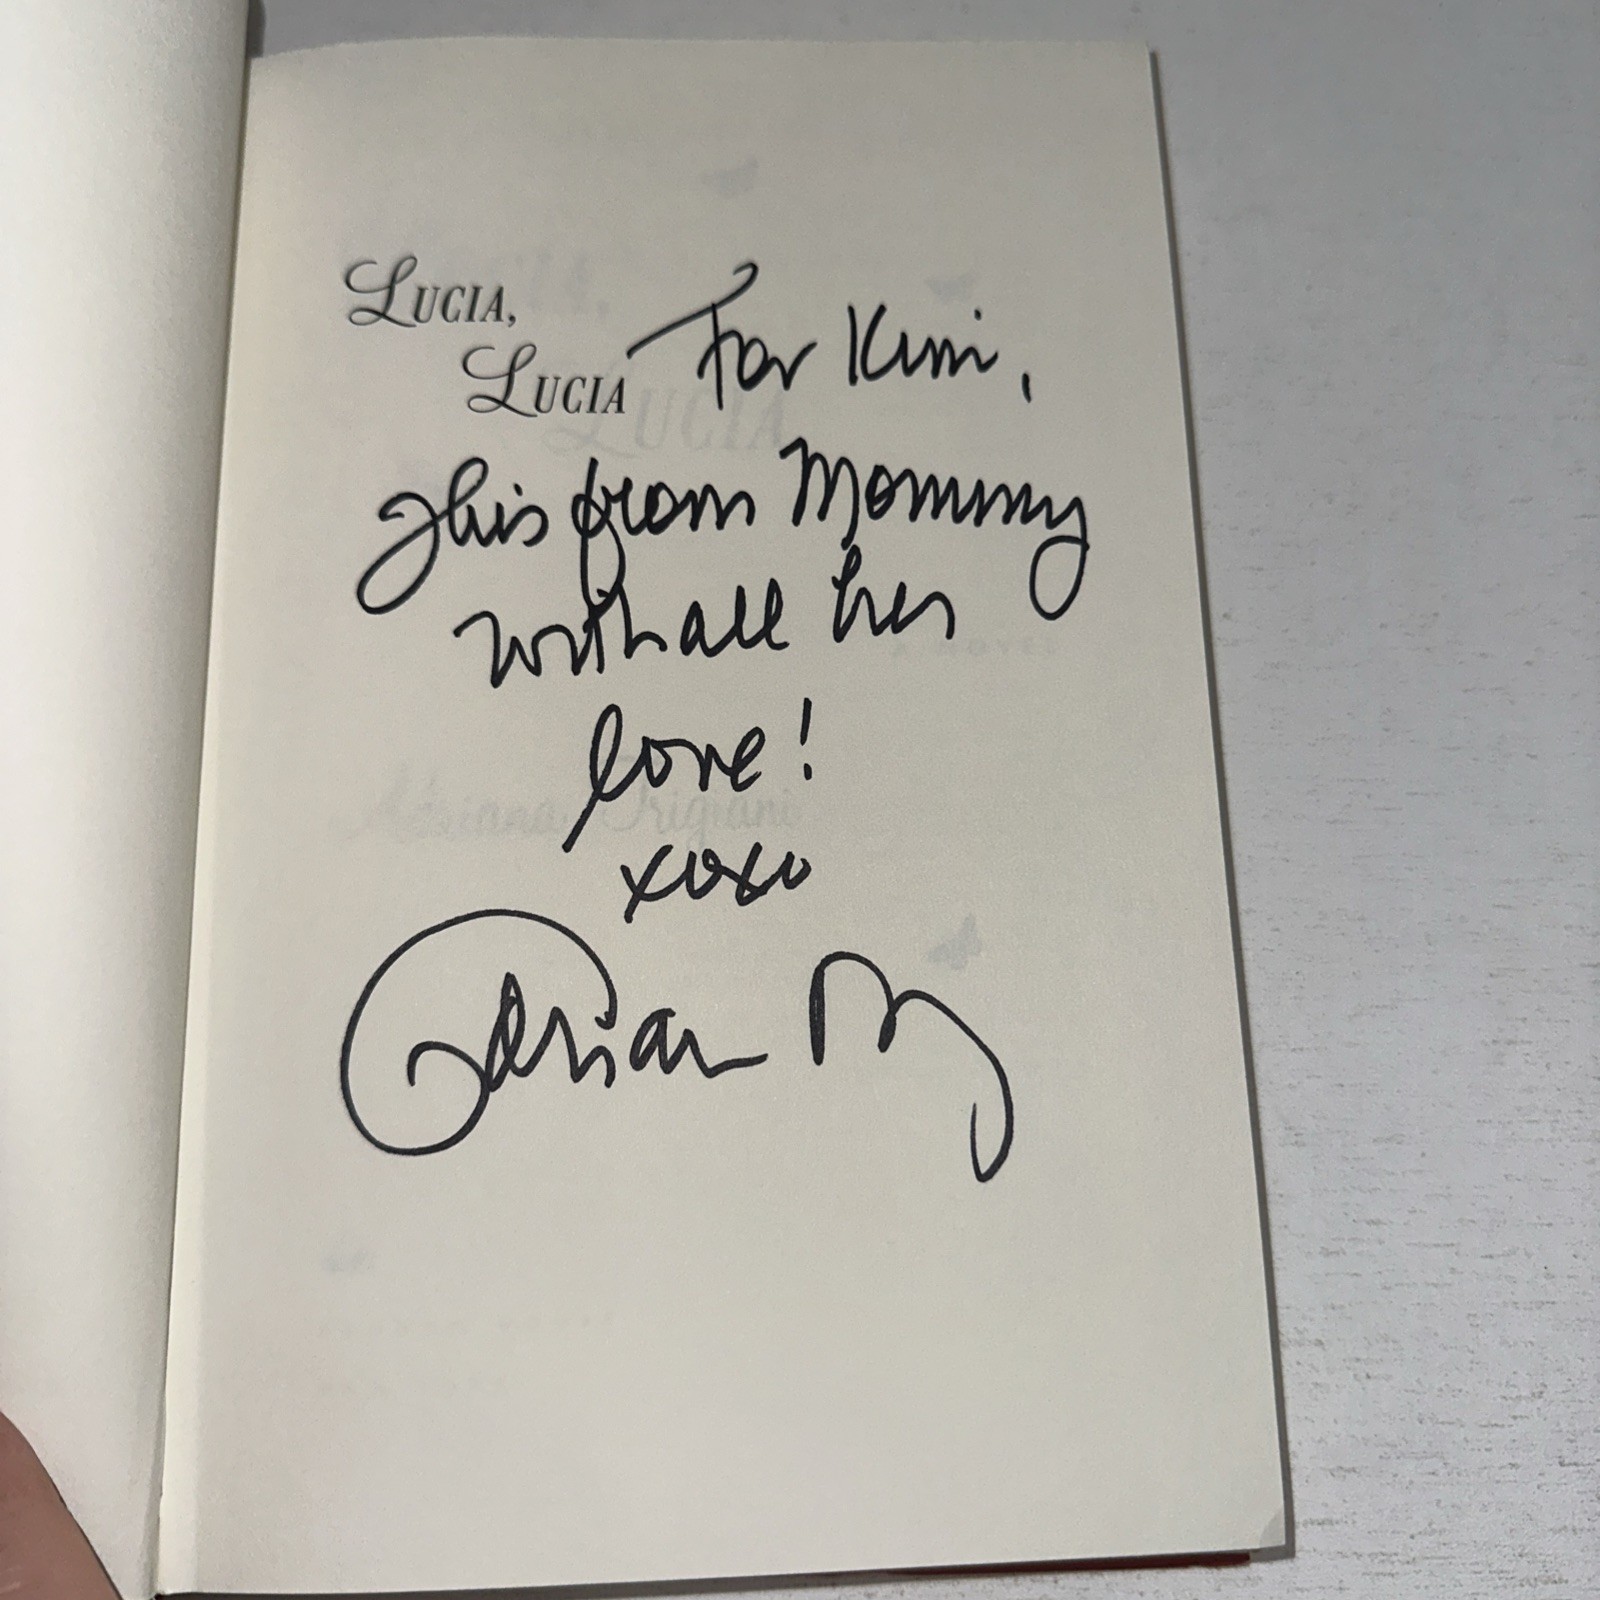 LUCIA,
LUCIA
For Kim,
This from Mommy
with all her
love!
xoxo
Adriana
A NOVEL
Adriana Trigiani